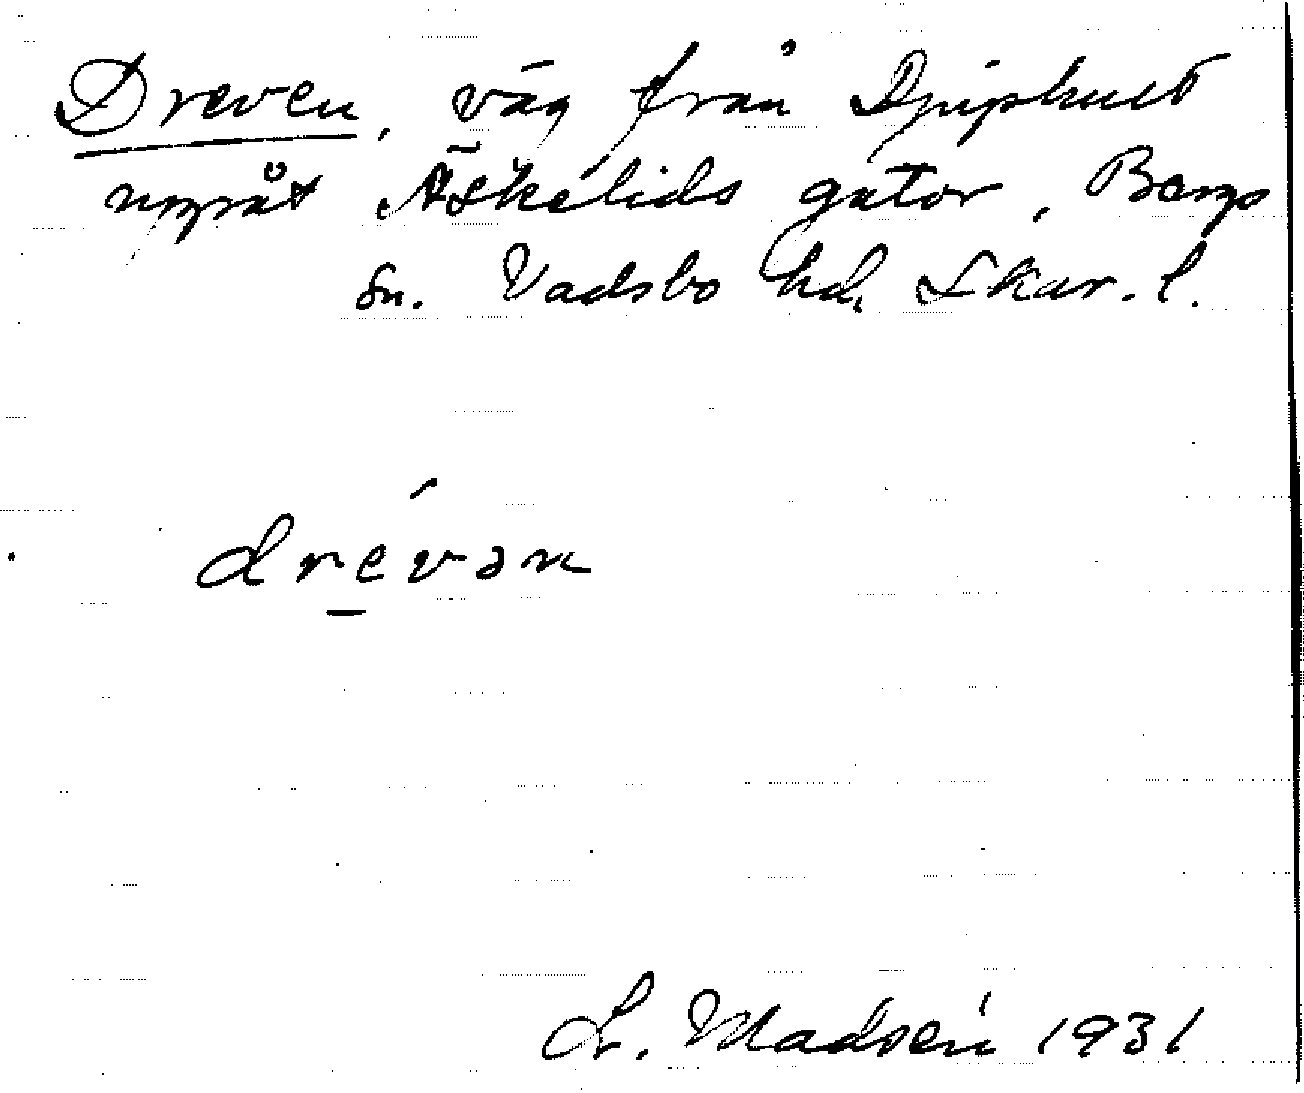 Dreven, väg från Djiphult
uppåt Äskelids gator, Bergs
sn. Vadsbo hd, Skar. l.
drevən
L. Madsén 1931